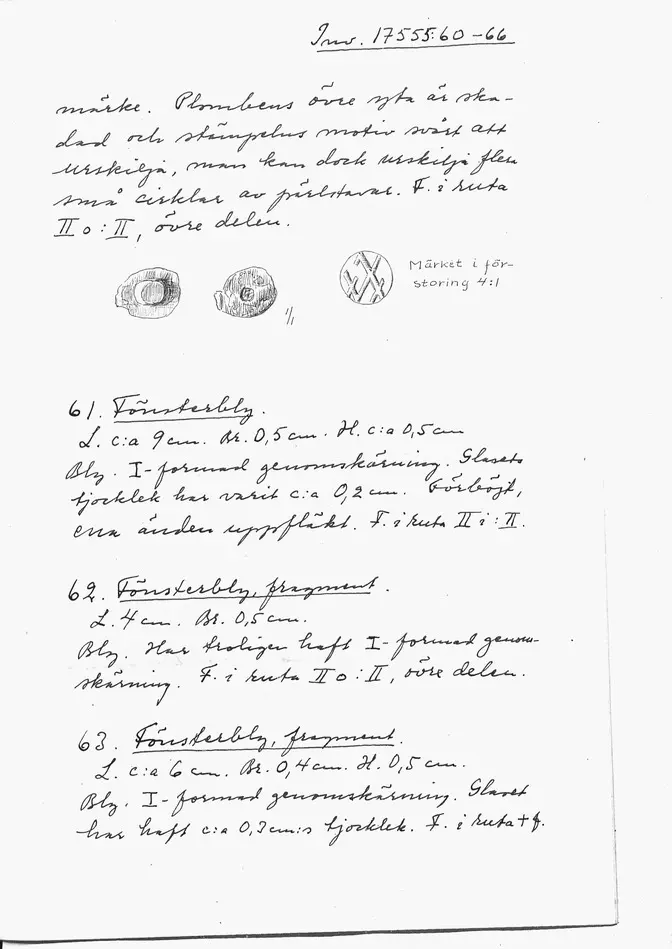 Inv. 17555:60-66
märke. Plombens övre yta är ska-
dad och stämpelns motiv svårt att
urskilja, man kan dock urskilja flera
små cirklar av pärlstavar. F. i ruta
II o : II, övre delen.
1/1
Märket i för-
storing 4:1
61. Fönsterbly.
L. c:a 9 cm. Br. 0,5 cm. H. c:a 0,5 cm
Bly. I-formad genomskärning. Glasets
tjocklek har varit c:a 0,2 cm. Förböjt,
ena änden uppfläkt. F. i ruta II i : II.
62. Fönsterbly, fragment.
L. 4 cm. Br. 0,5 cm.
Bly. Har troligen haft I-formad genom-
skärning. F. i ruta II o : II, övre delen.
63. Fönsterbly, fragment.
L. c:a 6 cm. Br. 0,4 cm. H. 0,5 cm.
Bly. I-formad genomskärning. Glaset
har haft c:a 0,3 cm:s tjocklek. F. i ruta + f.